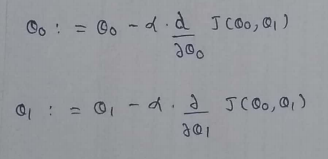 θ₀ := θ₀ - α · ∂/∂θ₀ J(θ₀, θ₁)
θ₁ := θ₁ - α · ∂/∂θ₁ J(θ₀, θ₁)